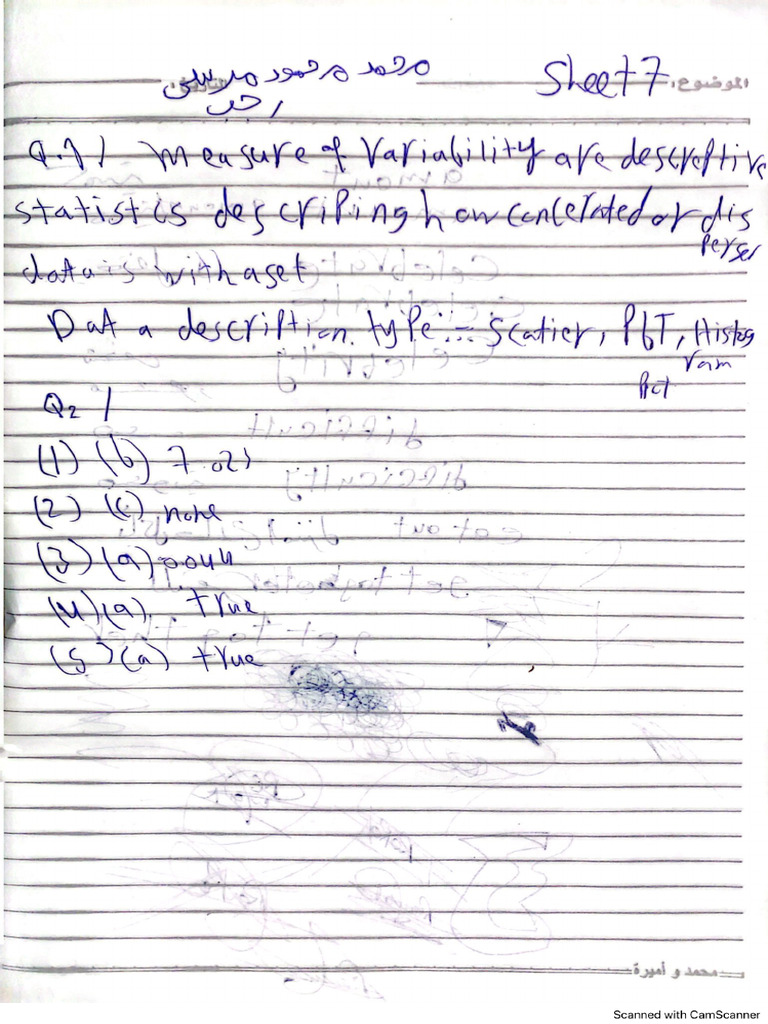 الموضوع: Sheet 7
التاريخ: محمد محمود مرسى
رجب
Q.1 / Measure of Variability are descreptive
statistics descriping how concerated or dis
Perser
data is with a set
Data description type :- Scatter, Plot, Histog
ram
Plot
Q2 /
(1) (b) 7.021
(2) (c) none
(3) (a)
(4) (a) true
(5) (a) true
محمد و أميرة
Scanned with CamScanner